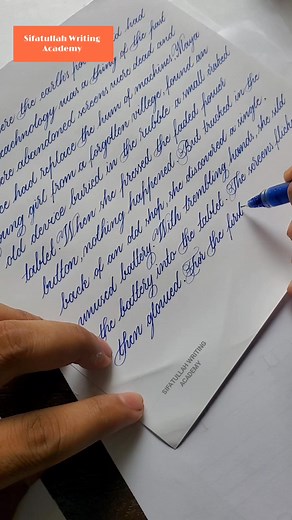 Sifatullah Writing
Academy
ere the earths had
technology was a thing of the past
ore abandoned screens were dead and
ce had replace the hum of machines. Naya
oung girl from a forgotten village, found an
old device buried in the rubble a small craked
tablet. When she pressed the faded power
button, nothing happened. But trusted in the
back of an old shop, she discovered a single
unused battery. With trembling hands, she slid
the battery into the tablet. The screens flicke
then glowed. For the first
SIFATULLAH WRITING
ACADEMY